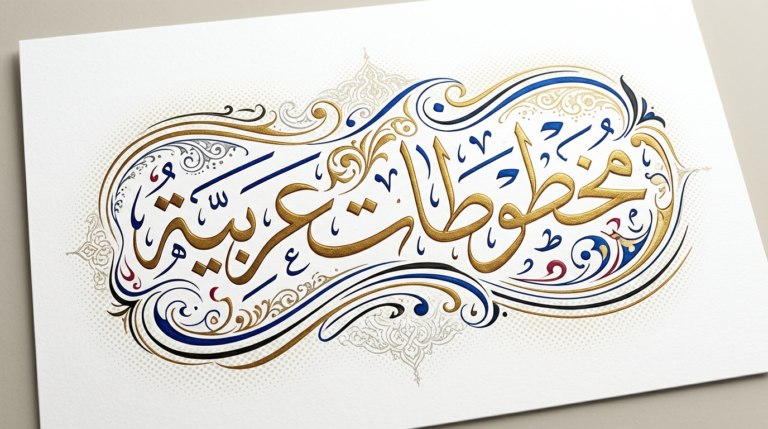 مخطوطات عربية